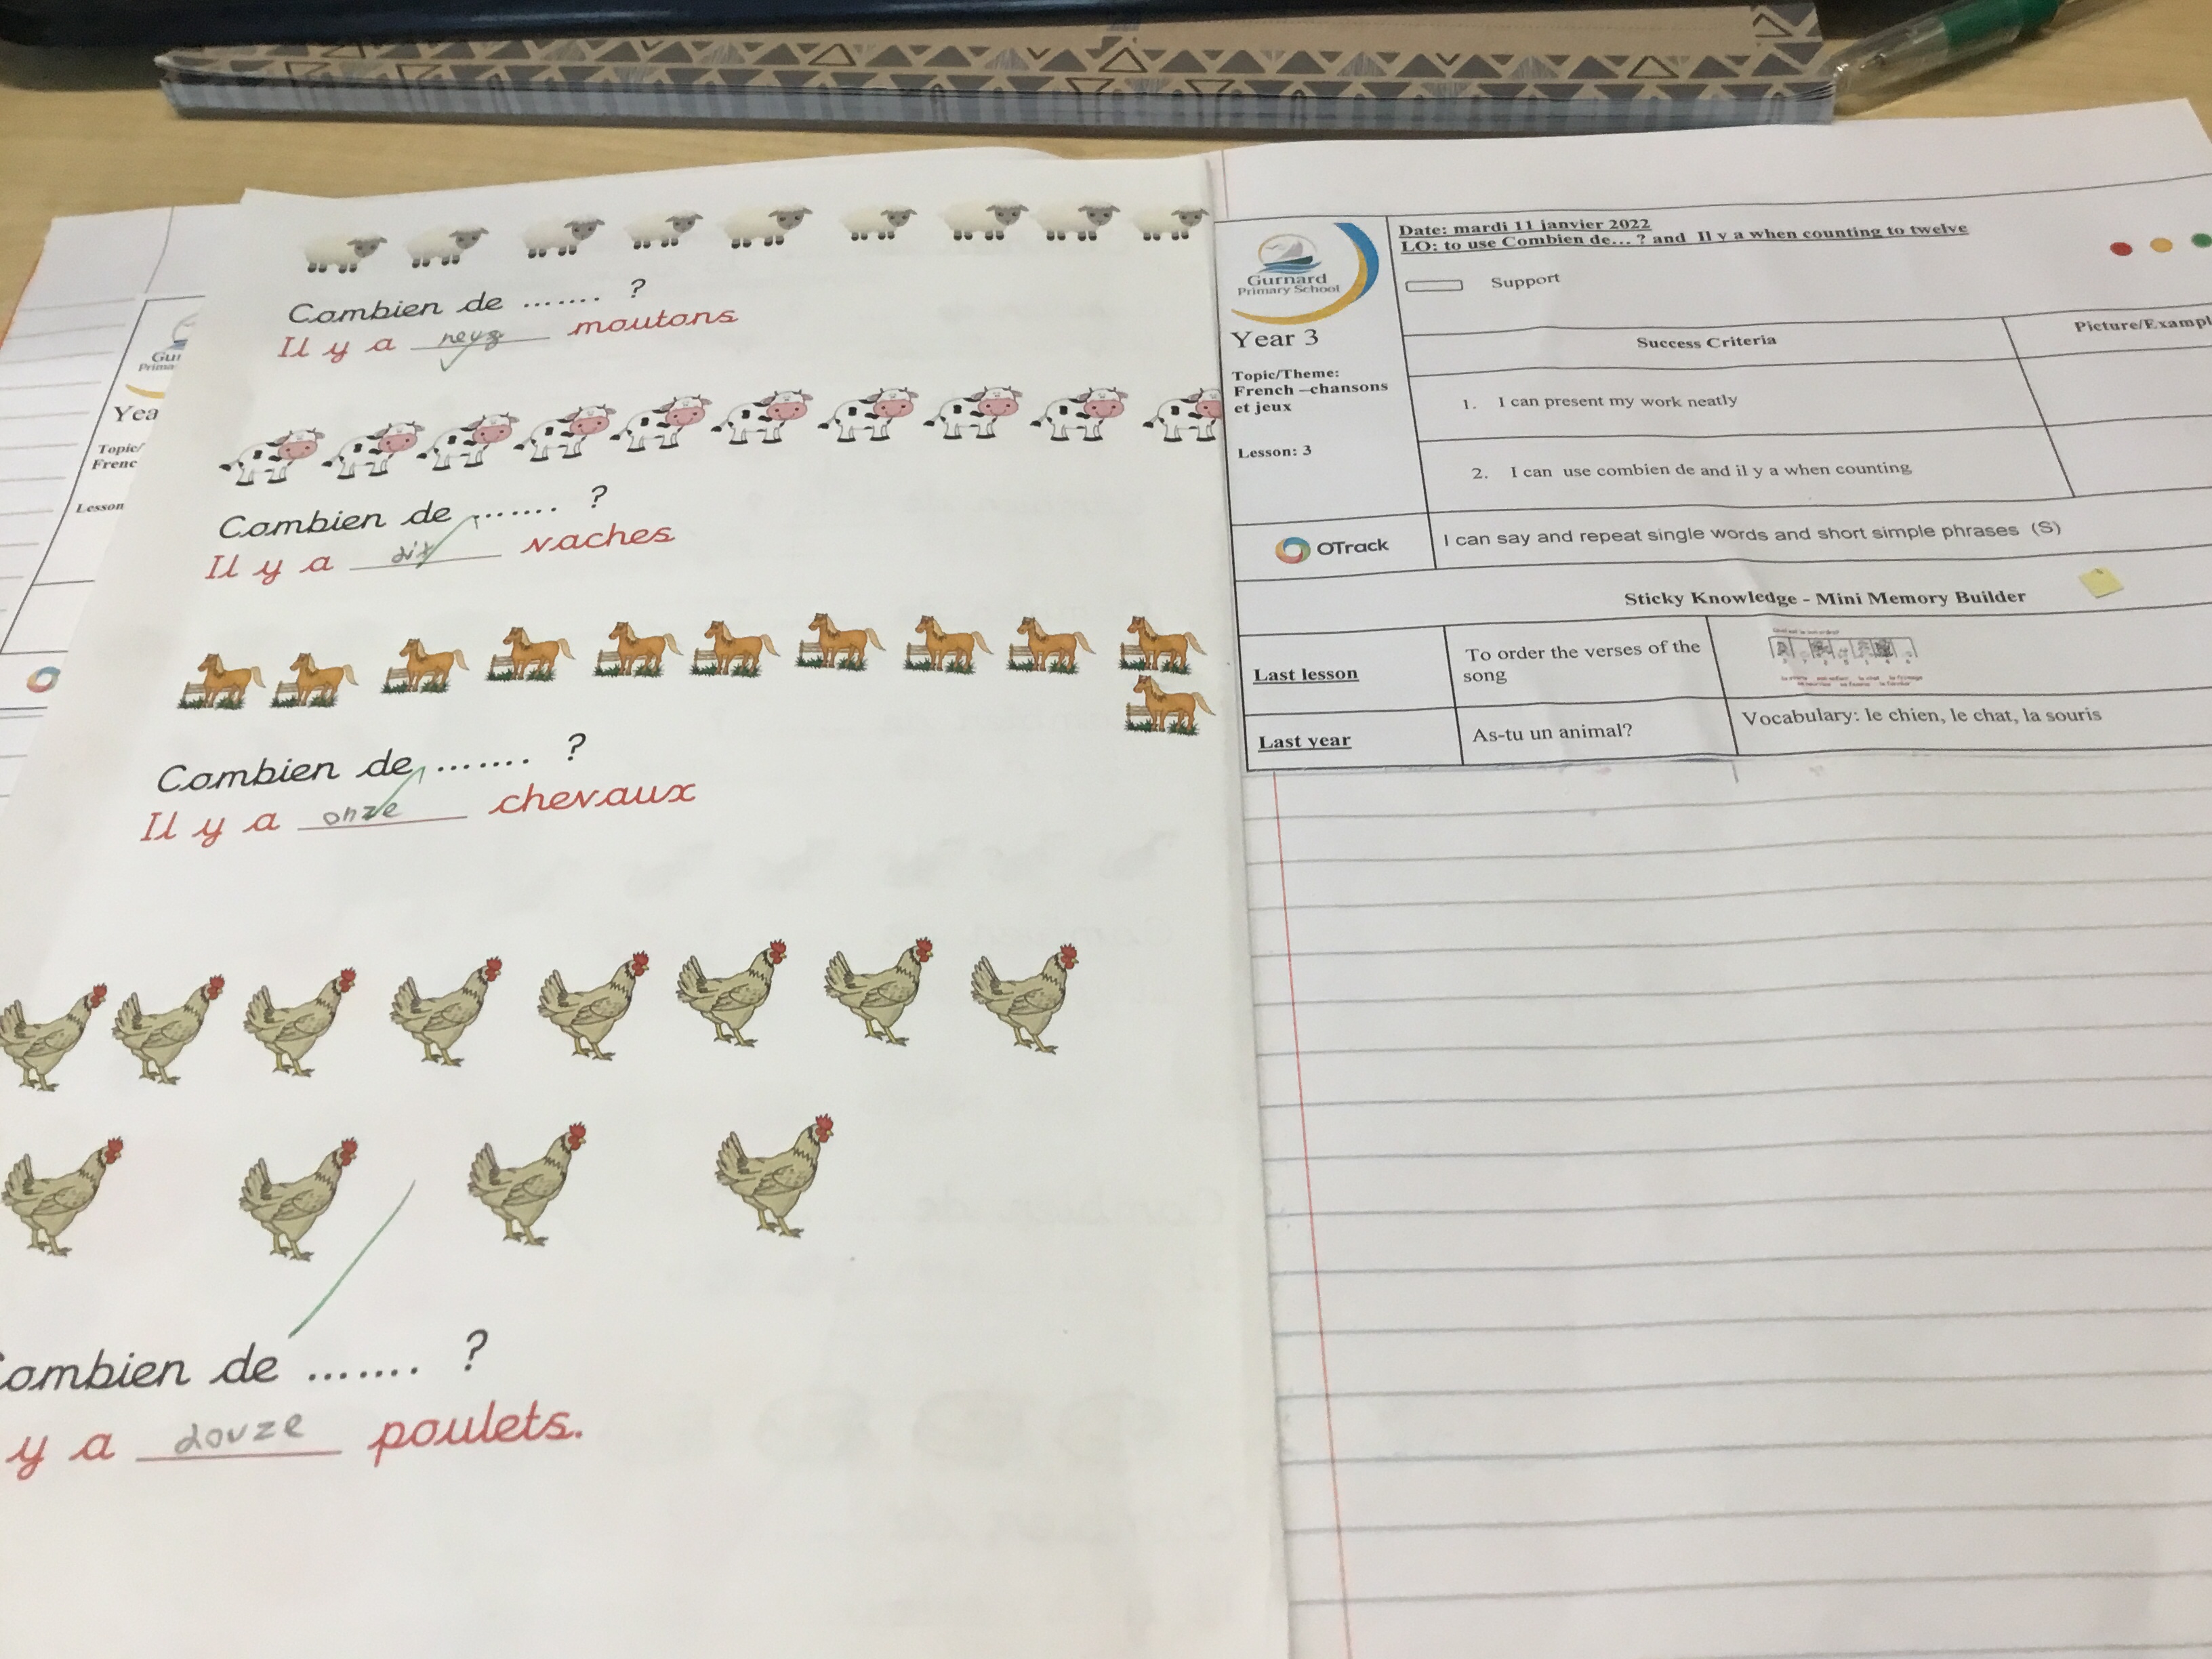 Combien de ....... ?
Il y a moutons
Combien de ....... ?
Il y a dix vaches
Combien de ....... ?
Il y a onze chevaux
Combien de ....... ?
y a douze poulets.
Gurnard
Primary School
Year 3
Topic/Theme:
French –chansons
et jeux
Lesson: 3
Date: mardi 11 janvier 2022
LO: to use Combien de... ? and Il y a when counting to twelve
Support
Success Criteria
Picture/Exampl
1. I can present my work neatly
2. I can use combien de and il y a when counting
OTrack
I can say and repeat single words and short simple phrases (S)
Sticky Knowledge - Mini Memory Builder
Last lesson
To order the verses of the
song
Last year
As-tu un animal?
Vocabulary: le chien, le chat, la souris
Gur
Prima
Yea
Topic/
Frenc
Lesson